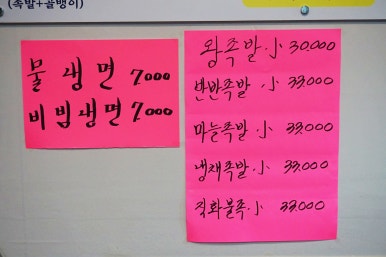 (족발+골뱅이)
물냉면 7000
비빔냉면 7000
왕족발.小 30.000
반반족발.小 33.000
마늘족발.小 33.000
냉채족발.小 33.000
직화불족.小 33.000